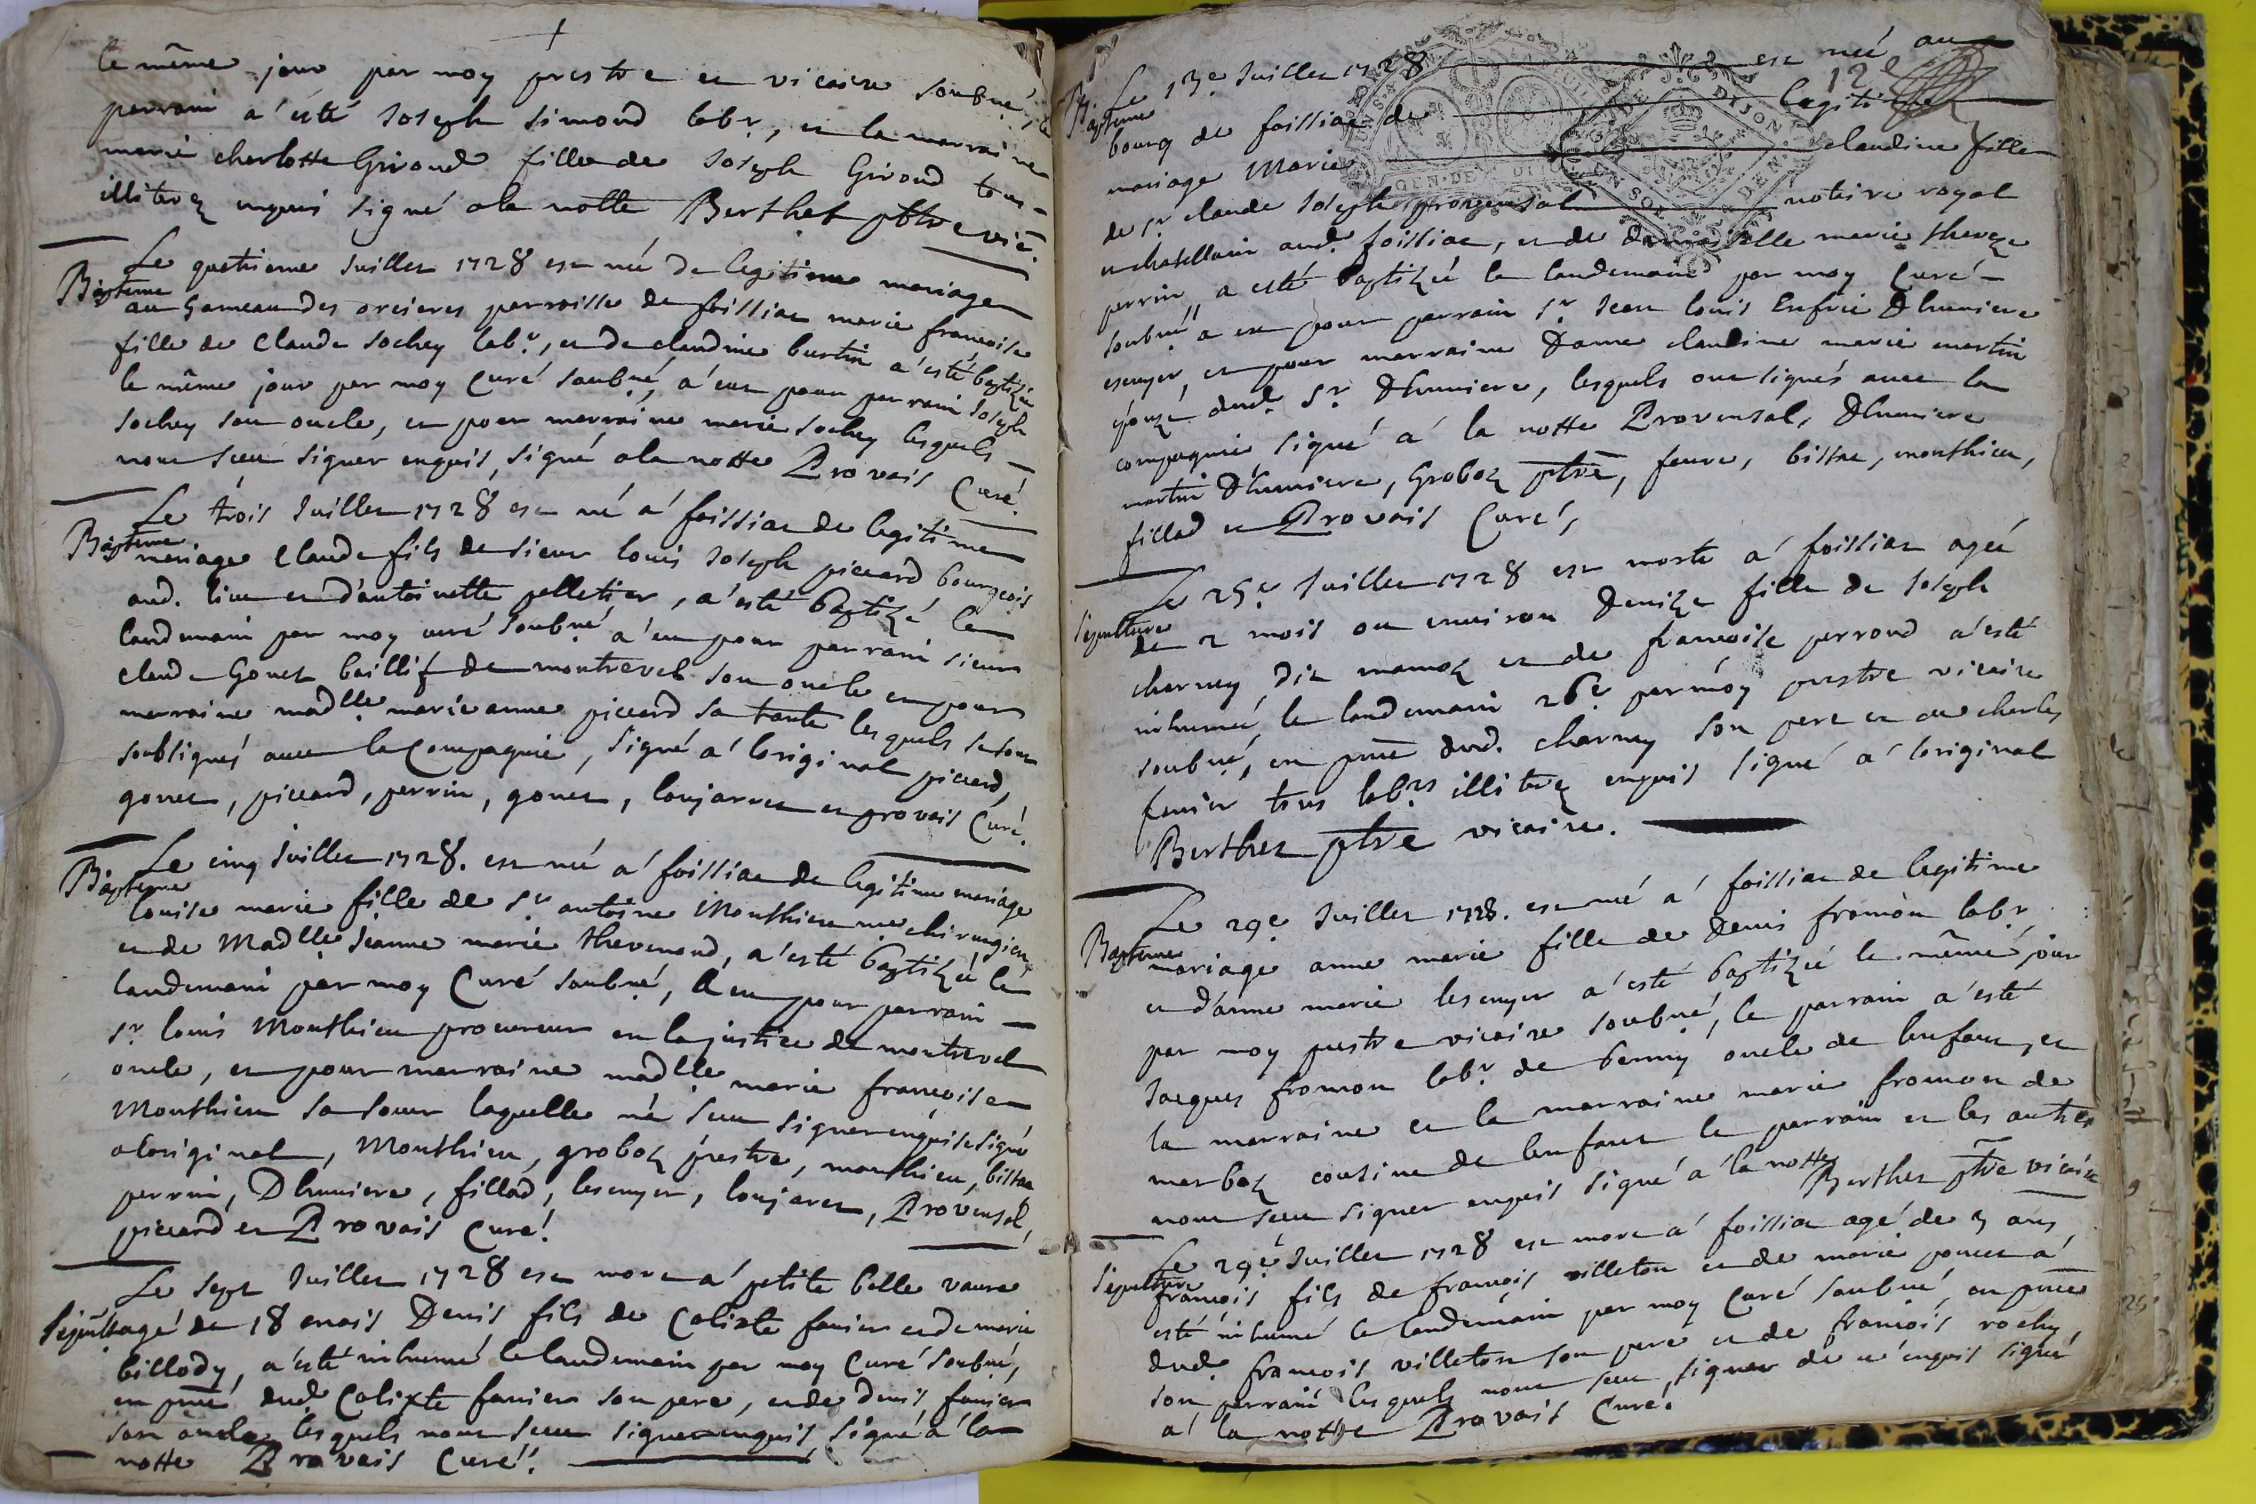 le même jour par moy prestre et vicaire soubné, le
parrain a' esté Joseph Simond labr, et la marraine
marie charlotte Giroud fille de Joseph Giroud tous
illiterez enquis signé a la notte Berthet ptre vic.
Bapteme
Le quatrieme Juillet 1728 est née de legitime mariage
au hameau des orcieres parroisse de foissiat marie francoise
fille de Claude Sochey labr, et de claudine burtin a'esté baptizée
le même jour par moy Curé soubné, a' eut pour parrain Joseph
Sochey son oncle, et pour marraine marie Sochey lesquels
nont sceu signer enquis, signé a la notte Provais Curé.
Bapteme
Le trois Juillet 1728 est né a' foissiat de legitime
mariage Claude fils de sieur louis Joseph piccard bourgeois
aud. lieu et d'antoinette pelletier, a'esté baptizé le
landemain par moy curé soubné a'eu pour parrain sieur
claude Gonet baillif de montrevel son oncle et pour
marraine madlle marie anne piccard sa tante lesquels se sont
soubsignés avec la Compagnie, signé a' loriginal piccard,
gonet, piccard, perrin, gonet, loujarret et provais Curé.
Bapteme
Le cinq Juillet 1728. est née a' foissiat de legitime mariage
louise marie fille de Sr antoine Monthieu me chirurgien
et de Madlle Jeanne marie thevenard, a'esté baptizée le
landemain par moy Curé soubné, a eu pour parrain
Sr louis Monthieu procureur en la justice de montrevel
oncle, et pour marraine madlle marie francoise
Monthieu sa soeur laquelle na sceu signer enquise signé
a loriginal, Monthieu, groboz prestre, monthieu, bistac
perrin, Dhumiere, fillod, lescuyer, loujaret, Provensal,
piccard et Provais Curé!
Sepult.
Le sept Juillet 1728 est mort a' petite belle vavre
agé de 18 mois Denis fils de Calixte favier et de marie
billody, a'esté inhumé le landemain par moy Curé soubné,
en pnce dud. Calixte favier son pere, et de Denis favier
son oncle lesquels nont sceu signer enquis, signé a' la
notte Provais Curé!
12e
Bapteme
Le 13e Juillet 1728 est née au
bourg de foissiat de legitime
mariage Marie claudine fille
de Sr claude Joseph provensal notaire royal
et chatellain aud. foissiat, et de damoiselle marie thereze
perrin, a esté baptizée le landemain par moy Curé
soubné a eu pour parrain Sr Jean louis Enfrie Dhumiere
escuyer, et pour marraine Dame claudine marie martin
épouze dud. Sr Dhumiere, lesquels ont signés avec la
compagnie signé a' la notte Provensal, Dhumiere
martin Dhumiere, Groboz ptre, favre, bistac, monthieu,
fillod et Provais Curé,
Sepulture
Le 25e Juillet 1728 est morte a' foissiat agée
de 2 mois ou environ Denize fille de Joseph
charney dit mamoz et de francoise perroud a'esté
inhumée le landemain 26e par moy prestre vicaire
soubné, en pnce dud. charney son pere et de charles
favier tous labrs illiterez enquis signé a' loriginal
Berthet ptre vicaire.
Bapteme
Le 29e Juillet 1728. est née a' foissiat de legitime
mariage anne marie fille de Denis fromon labr
et d'anne marie lescuyer a'esté baptizée le même jour
par moy prestre vicaire soubné, le parrain a'esté
Jacques fromon labr de benny oncle de lenfant, et
la marraine et la marraine marie fromon de
marboz cousine de lenfant le parrain et les autres
nont sceu signer enquis signé a' la notte
Berthet ptre vicaire
Sepulture
Le 29e Juillet 1728 est mort a' foissiat agé de 3 ans
francois fils de francois villeton et de marie poncet a'
esté inhumé le landemain par moy Curé soubné, en pnce
dud. francois villeton son pere et de francois rochy
son parrain lesquels nont sceu signer de ce enquis signé
a' la notte Provais Curé!